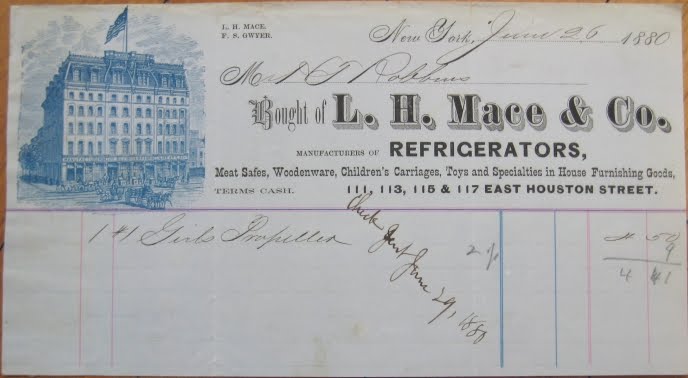 L. H. MACE.
F. S. GWYER.
New York, June 26 1880
M A T Robbins
Bought of L. H. Mace & Co.
MANUFACTURERS OF REFRIGERATORS,
Meat Safes, Woodenware, Children's Carriages, Toys and Specialties in House Furnishing Goods,
TERMS CASH. 111, 113, 115 & 117 EAST HOUSTON STREET.
1 #1 Girls Propeller 4 50
2 % 9
4 41
Check Sent June 29, 1880